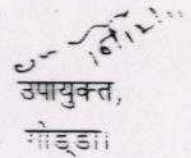 उपायुक्त,
गोड्डा।